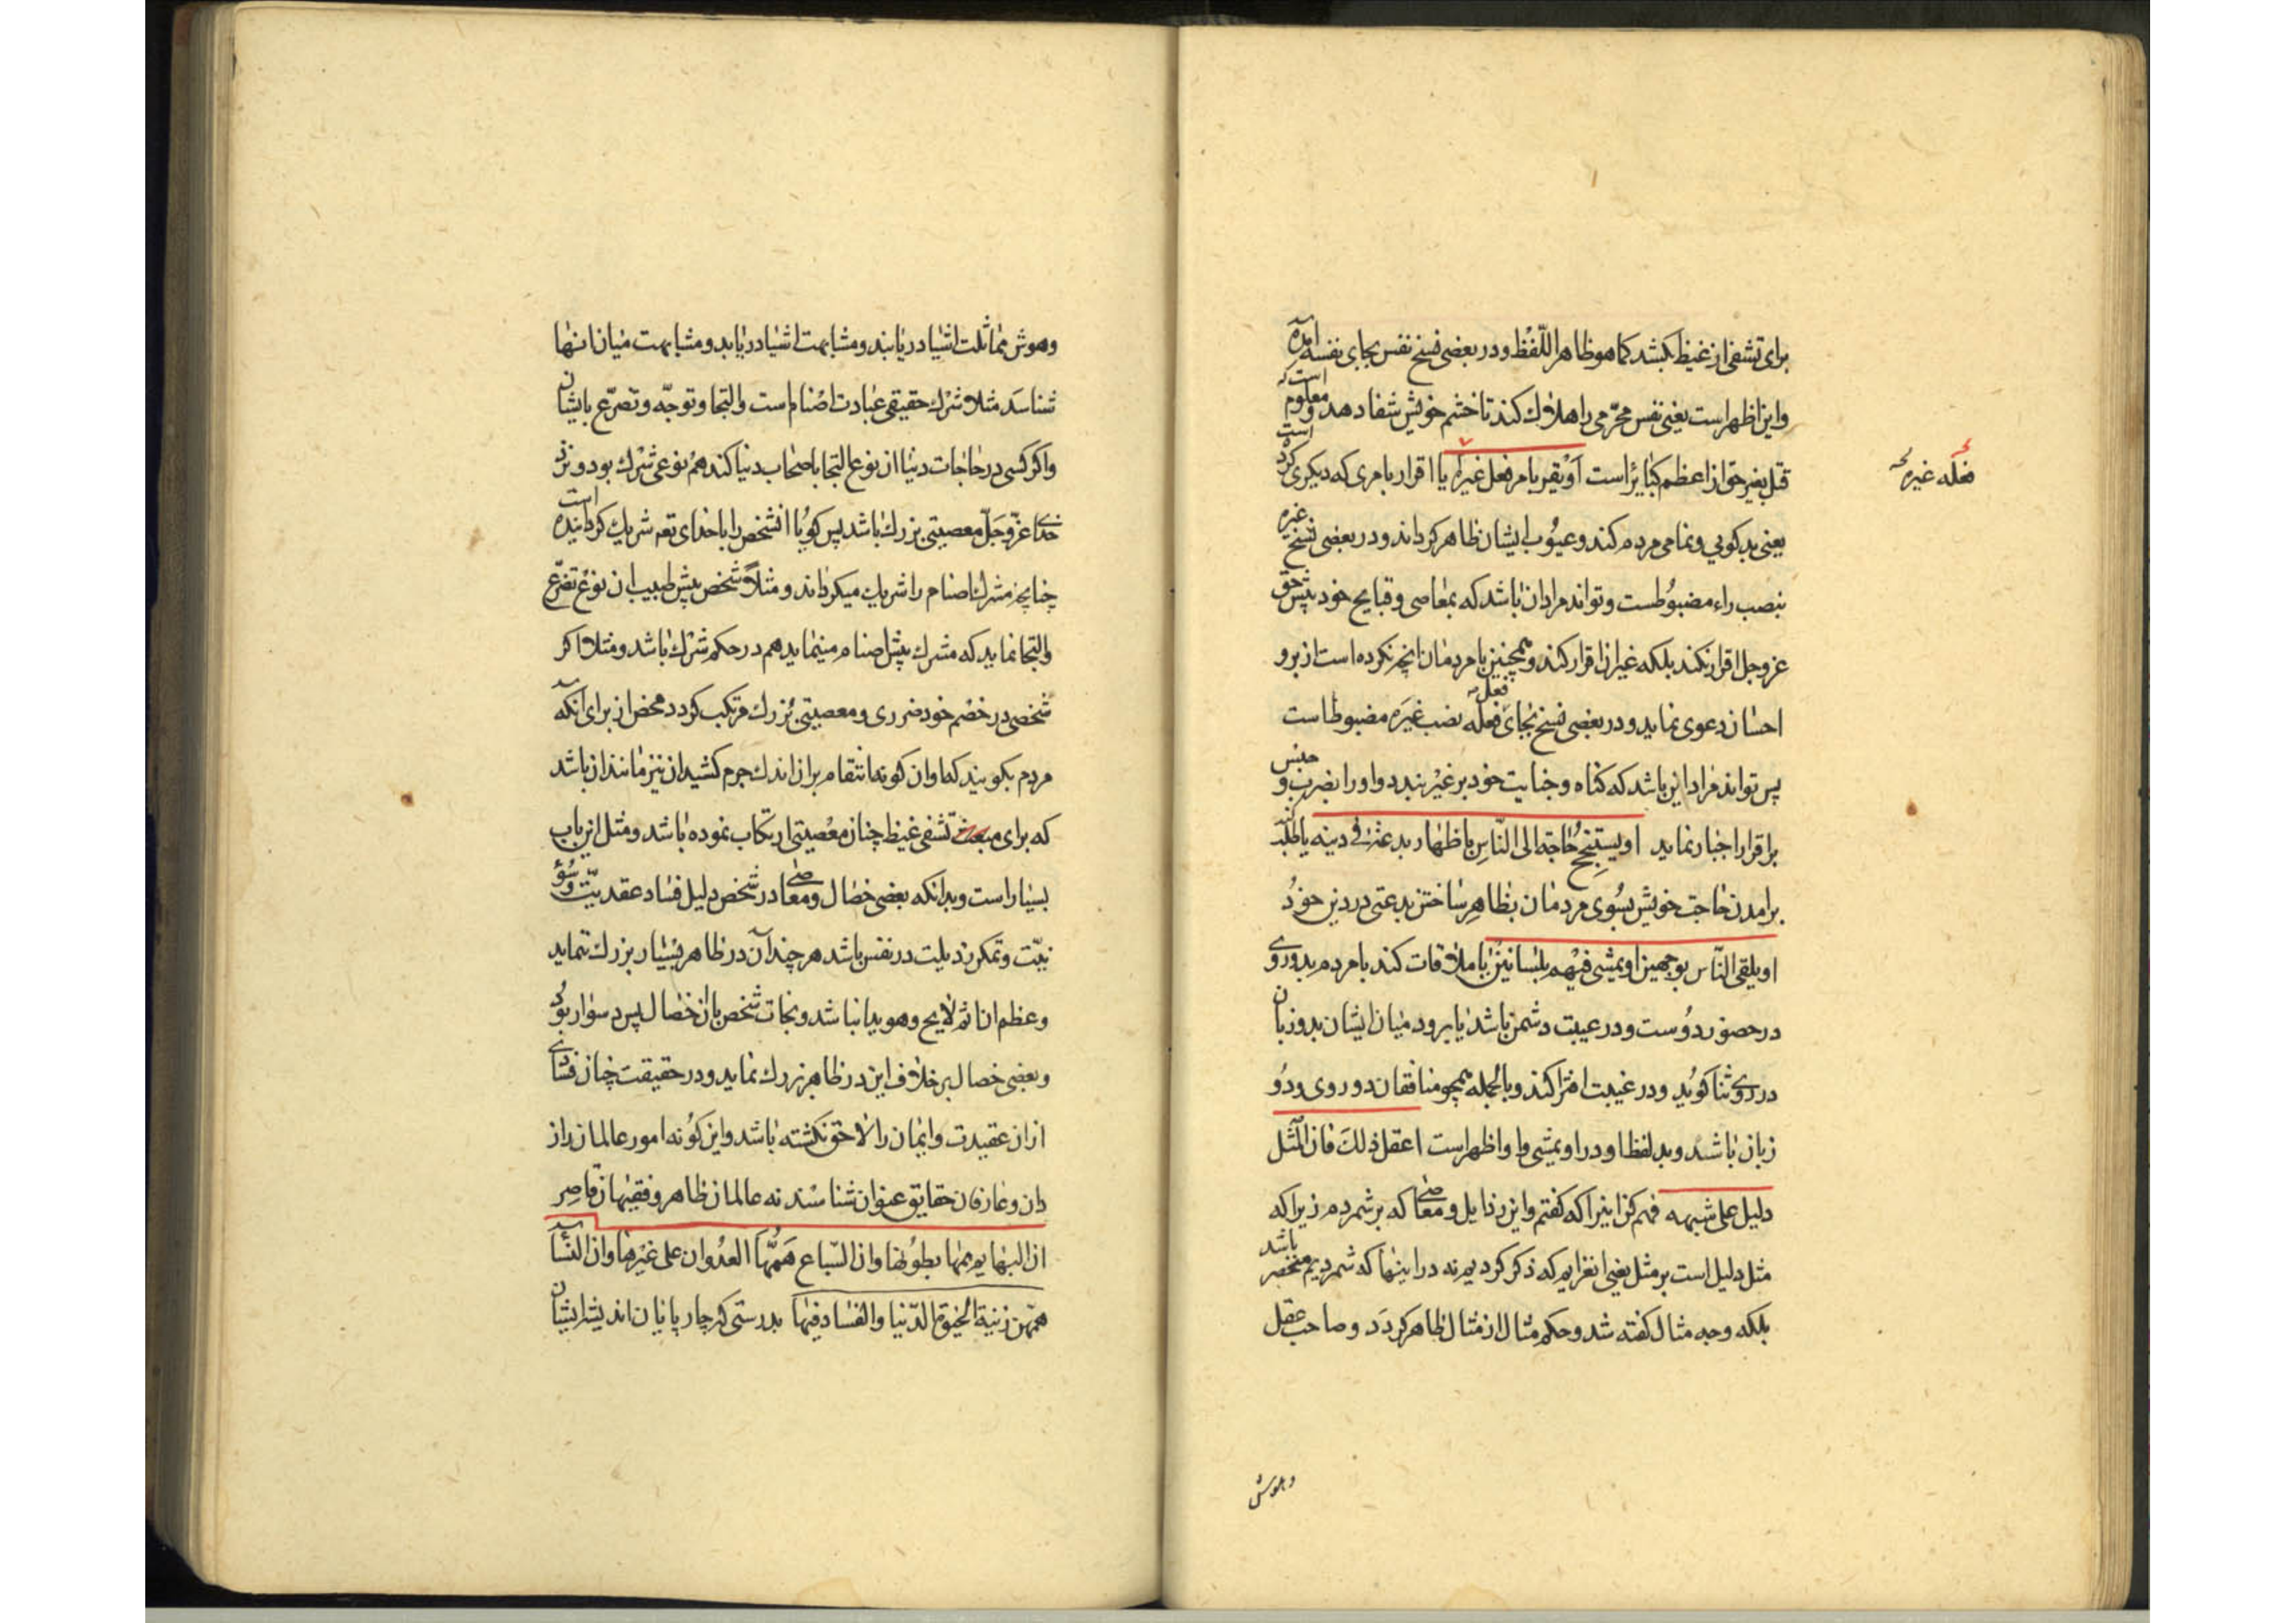 برای تشفی از غیظ بکشد کما هو ظاهر اللّفظ و در بعضی نسخ نفس بجای نفسه آمده
است که
و این اظهر است یعنی نفس محرّمی را هلاك کند تا خشم خویش شفا دهد و معلوم
است
قتل بغیر حق از اعظم کبائر است اَوْ یُقر بامر فعل غیرُه یا اقرار بامری که دیکری کرد
فعله غیره
یعنی بد کویی و نمامی مردم کند و عیُوب ایشان ظاهر کرداند و در بعضی نسخ غیره
بنصب راء مضبوُطست و تواند مراد ان باشد که بمعاصی و قبایح خود پیش حق
عز و جل اقرار نکند بلکه غیر ان اقرار کند و همچنین با مردمان انچه نکرده است از بر و
احسان دعوی نماید و در بعضی نسخ بجای فعله فعل به نصب غیرَه مضبوط است
پس تواند مراد این باشد که کناه و جنایت خود بر غیر بندد و او را بضرب و حبس
بر اقرار اجبار نماید او یستنجح حاجة الی النّاس باظهار بدعة فی دینه یا طلب کند
برامدن حاجت خویش بسُوی مردمان بظاهر ساختن بدعتی در دین خودُ
او یلقی النّاس بوجهین او یمشی فیهم بلسانین یا ملاقات کند با مردم بدو روی
در حضور دوُست و در غیبت دشمن باشد یا برود میان ایشان بدو زبان
در روی ثنا کوید و در غیبت افترا کند و بالجمله همچو منافقان دو روی و دُو
زبان باشد و بد لفظ او در او یمشی واو اظهر است اعقل ذلكَ فان المثل
دلیل علی شبهه فهم کن اینرا که کفتم و این رذایل و معاصی که بر شمردم زیرا که
مثل دلیل است بر مثل یعنی انغرایم که ذکر کردیم نه در اینها که شمردیم منحصر باشد
بلکه وجه مثال کفته شد و حکم مثال از مثال ظاهر کردَد و صاحب عقل
و هوش
و هوش مماثلت اشیا در یابند و مشابهت اشیا در یابد و مشابهت میان انها
شناسَد مثلا شرك حقیقی عبادت اصنام است و التجا و توجّه و تضرّع بایشان
و اکر کسی در حاجات دنیا ان نوع التجا باصحاب دنیا کند هم نوعی شرك بود و نزد
خدا عزّ و جَلّ معصیتی بزرك باشد پس کویا انشخص را با خدای تعم شریك کردانیده است
چنانچه مشرك اصنام را شریك میکرداند و مثلاً شخص پیش طبیب ان نوع تضرّع
و التجا نماید که مشرك پیش اصنام مینماید هم در حکم شرك باشد و مثلا اکر
شخصی در خصم خود ضرری و معصیتی بزرك مرتکب کردد محض از برای آنکه
مردم بکویند که او ان کونه انتقام بر ان اندك جرم کشید ان نیز مانند ان باشد
که برای تشفی غیظ چنان معصیتی ارتکاب نموده باشد و مثل این باب
بسیار است و بدانکه بعضی خصال و معاصی در شخص دلیل فساد عقدیّت و سُوءِ
نیّت و تمکن رذیلت در نفس باشد هر چند آن در ظاهر بسیار بزرك ننماید
و عظم ان اثم لایح و هویدا نباشد و نجات شخص با ان خصال پس دشوار بوُد
و بعضی خصال بر خلاف این در ظاهر بزرك نماید و در حقیقت چنان فسادی
از ان عقیدت و ایمان را لاحق نکشته باشد و این کوُنه امور عالمان راز
دان و عارفان حقایق عنوان شناسند نه عالمان ظاهر و فقیهان قاصر
ان البهایم همّها بطوُنها و ان السّباع هَمُّها العدُوان علی غیرها و ان النّساء
همّهن زینة الحیوة الدّنیا و الفساد فیها بدرستی که چار پایان اندیشۀ ایشان